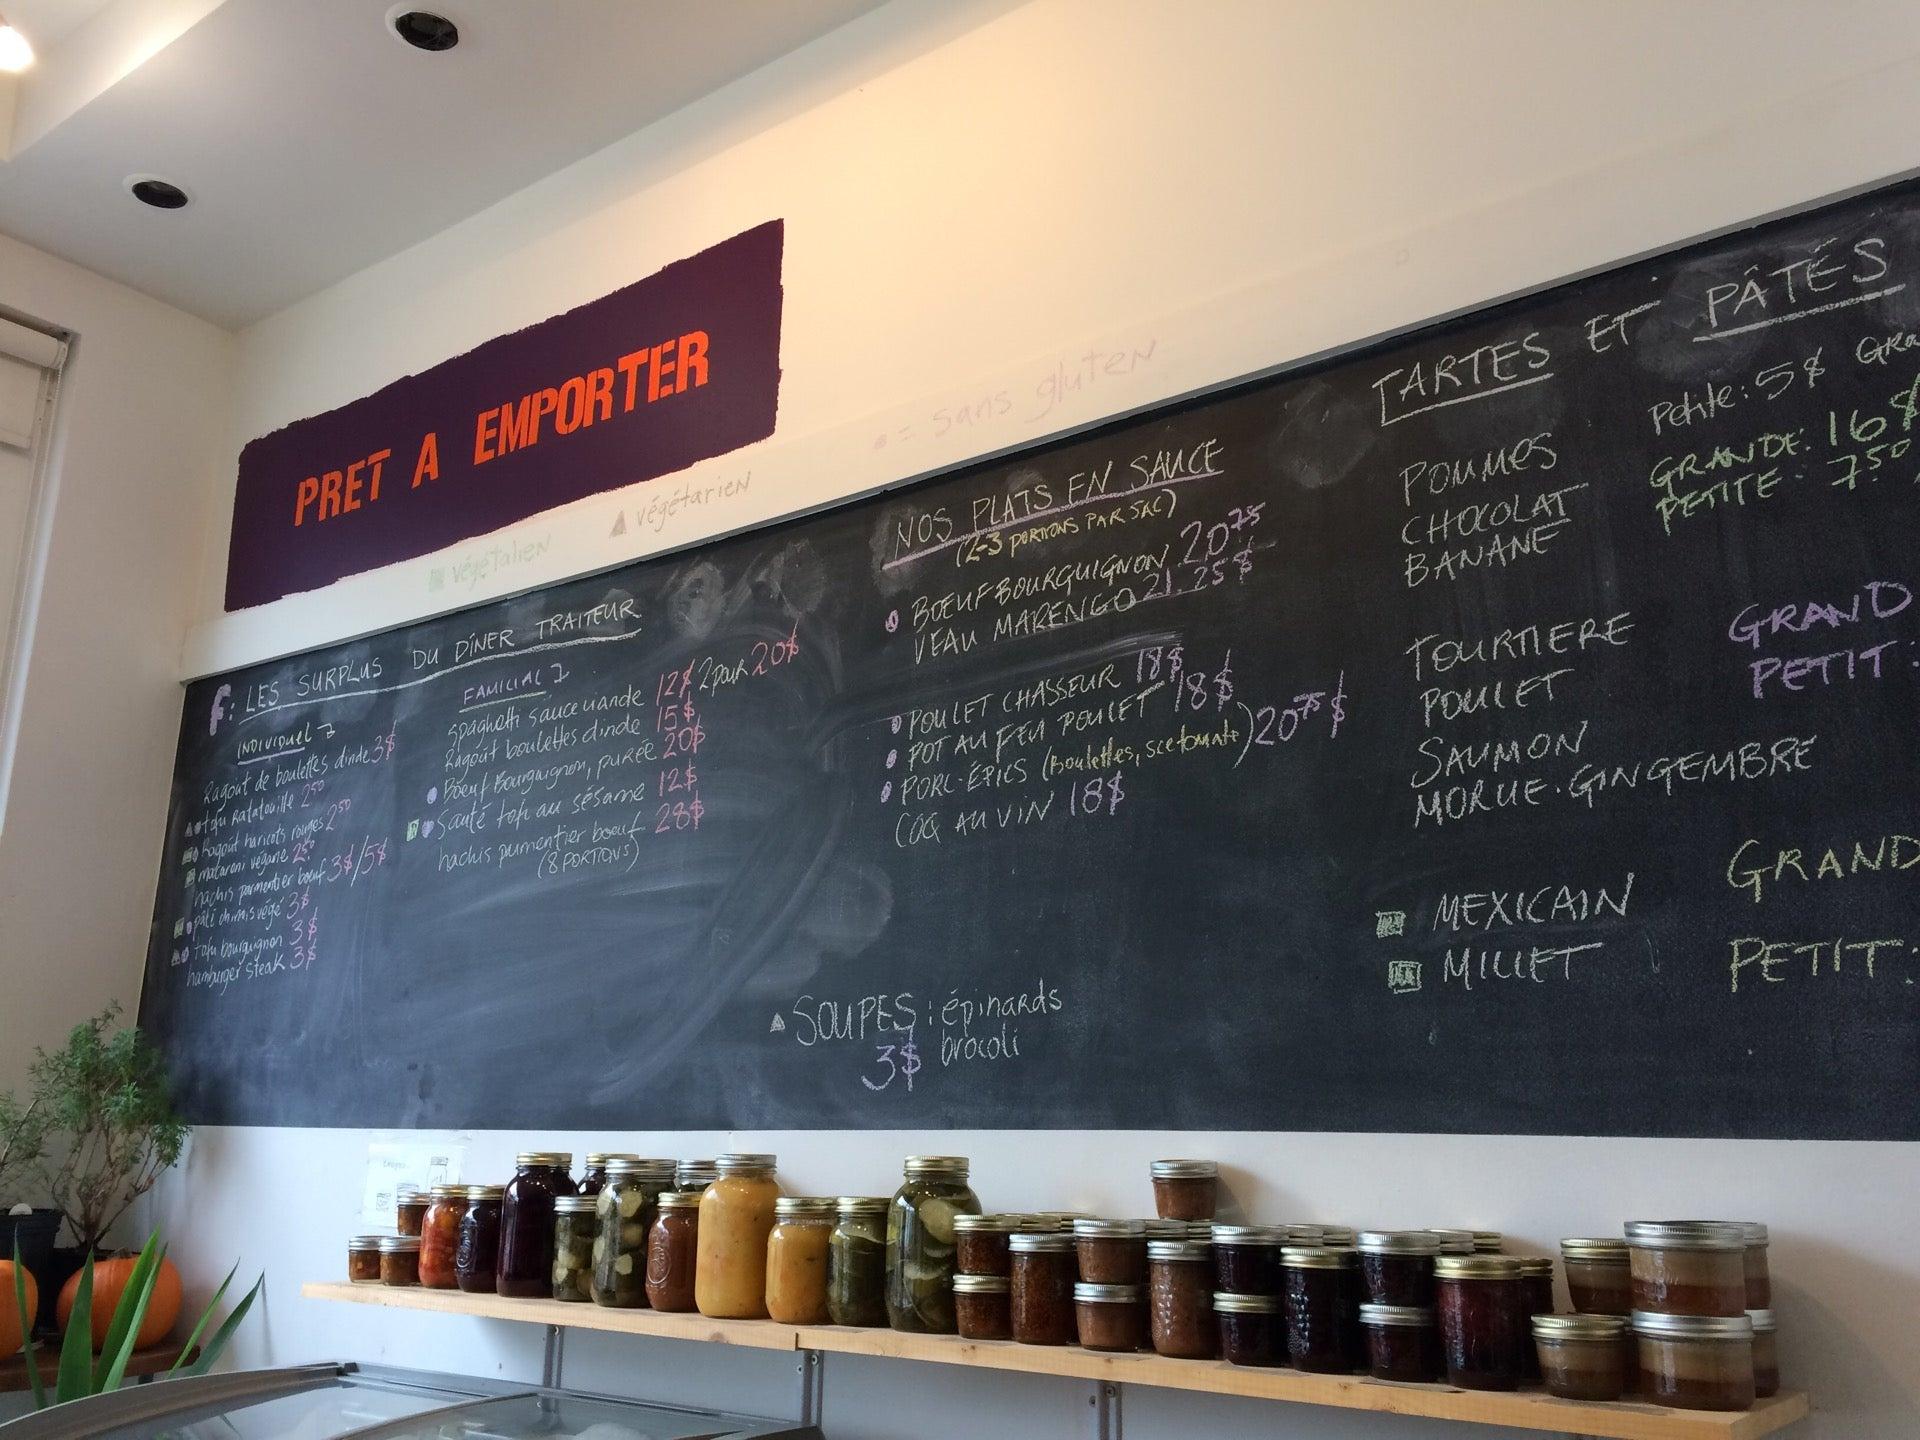 PRET A EMPORTER
= sans gluten
végétarien
végétalien
F: LES SURPLUS DU DÎNER TRAITEUR
INDIVIDUEL
Ragout de boulettes dinde 3$
tofu Ratatouille 2⁵⁰
Ragout haricots rouges 2⁵⁰
macaroni végane 2⁵⁰
hachis parmentier boeuf 3$/5$
pâté chinois végé 3$
tofu bourguignon 3$
hamburger steak 3$
FAMILIAL
spaghetti sauce viande 12$ 2 pour 20$
Ragoût boulettes dinde 15$
Boeuf Bourguignon, purée 20$
Sauté tofu au sésame 12$
hachis parmentier boeuf 28$
(8 PORTIONS)
NOS PLATS EN SAUCE
(2-3 PORTIONS PAR SAC)
BOEUF BOURGUIGNON 20⁷⁵
VEAU MARENGO 21.25$
POULET CHASSEUR 18$
POT AU FEU POULET 18$
PORC-ÉPICS (Boulettes, sce tomate) 20⁷⁵$
COQ AU VIN 18$
SOUPES: épinards
3$ brocoli
TARTES ET PÂTÉS
Petite: 5$
POMMES
CHOCOLAT
BANANE
GRANDE: 16$
PETITE: 7.⁵⁰
TOURTIERE
POULET
SAUMON
MORUE. GINGEMBRE
GRAND
PETIT:
MEXICAIN
MILLET
GRAND
PETIT: